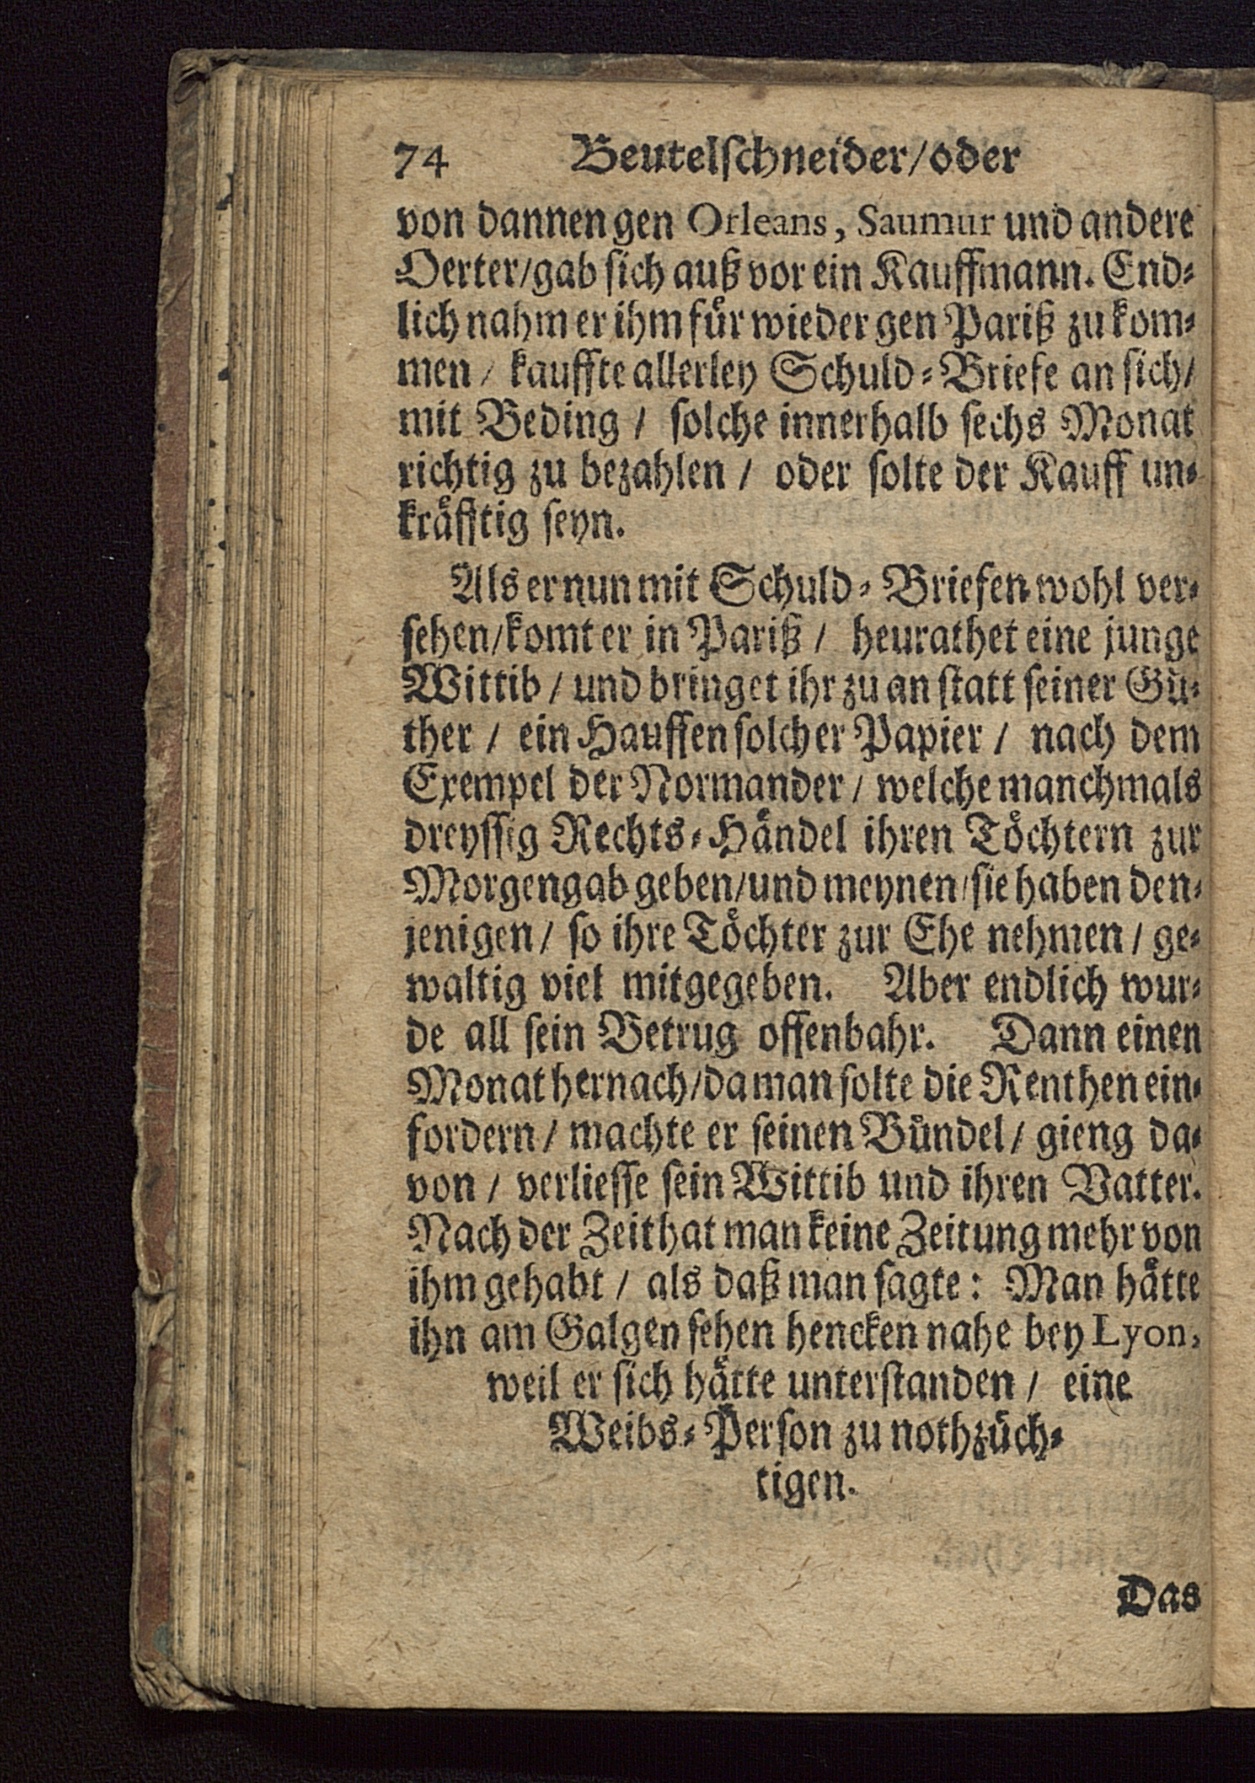 74 Beutelschneider/oder
von dannen gen Orleans, Saumur und andere
Oerter/gab sich auß vor ein Kauffmann. End-
lich nahm er ihm für wieder gen Pariß zu kom-
men / kauffte allerley Schuld-Briefe an sich/
mit Beding / solche innerhalb sechs Monat
richtig zu bezahlen / oder solte der Kauff un-
kräfftig seyn.
Als er nun mit Schuld-Briefen wohl ver-
sehen/komt er in Pariß / heurathet eine junge
Wittib / und bringet ihr zu an statt seiner Gü-
ther / ein Hauffen solcher Papier / nach dem
Exempel der Normander / welche manchmals
dreyssig Rechts-Händel ihren Töchtern zur
Morgengab geben/und meynen/sie haben den-
jenigen / so ihre Töchter zur Ehe nehmen / ge-
waltig viel mitgegeben. Aber endlich wur-
de all sein Betrug offenbahr. Dann einen
Monat hernach/da man solte die Renthen ein-
fordern / machte er seinen Bündel / gieng da-
von / verliesse sein Wittib und ihren Vatter.
Nach der Zeit hat man keine Zeitung mehr von
ihm gehabt / als daß man sagte: Man hätte
ihn am Galgen sehen hencken nahe bey Lyon,
weil er sich hätte unterstanden / eine
Weibs-Person zu nothzüch-
tigen.
Das